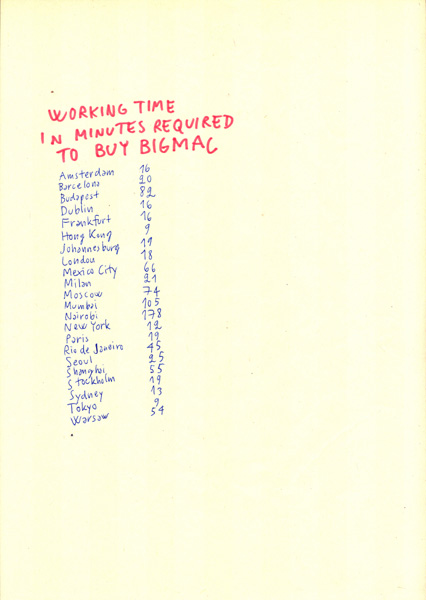 WORKING TIME
IN MINUTES REQUIRED
TO BUY BIGMAC
Amsterdam 16
Barcelona 20
Budapest 82
Dublin 16
Frankfurt 16
Hong Kong 9
Johannesburg 19
London 18
Mexico City 66
Milan 21
Moscow 74
Mumbai 105
Nairobi 178
New York 12
Paris 19
Rio de Janeiro 45
Seoul 25
Shanghai 55
Stockholm 19
Sydney 13
Tokyo 9
Warsaw 54